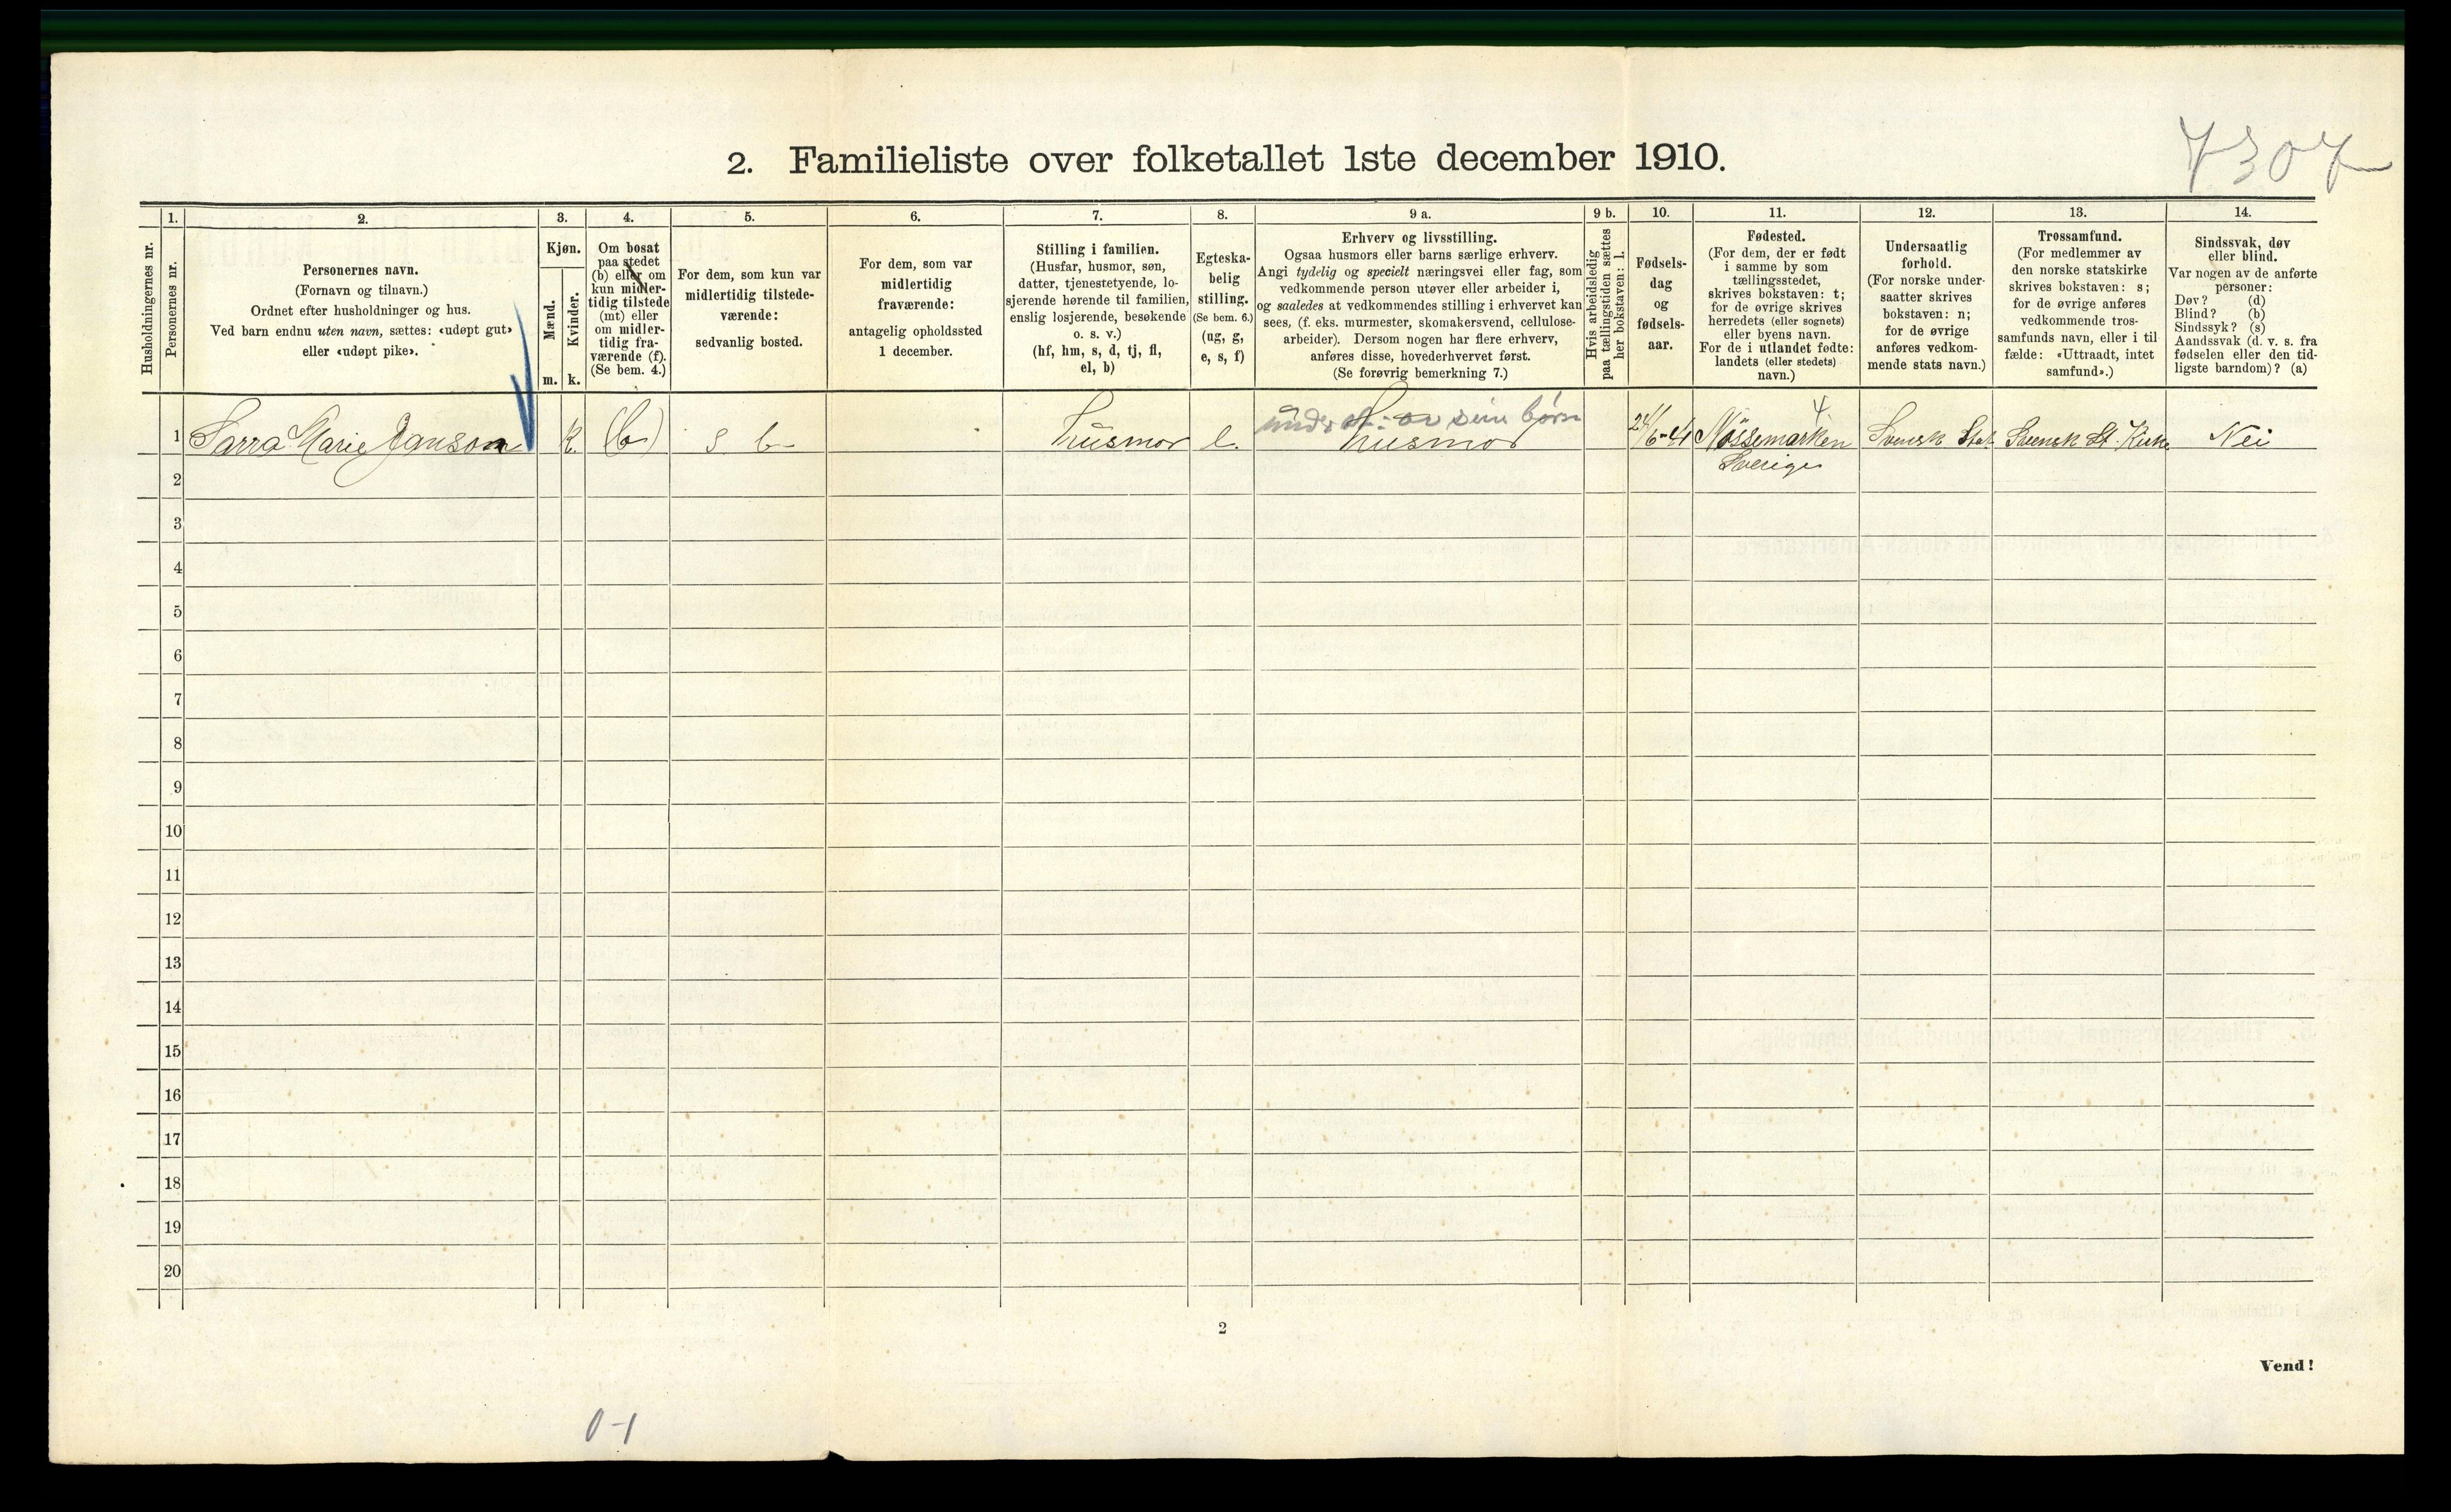 7307
2. Familieliste over folketallet 1ste december 1910.
Husholdningernes nr.
1.
Personernes nr.
2.
Personernes navn.
(Fornavn og tilnavn.)
Ordnet efter husholdninger og hus.
Ved barn endnu uten navn, sættes: «udøpt gut»
eller «udøpt pike».
3.
Kjøn.
Mænd.
Kvinder.
m. k.
4.
Om bosat
paa stedet
(b) eller om
kun midler-
tidig tilstede
(mt) eller
om midler-
tidig fra-
værende (f).
(Se bem. 4.)
5.
For dem, som kun var
midlertidig tilstede-
værende:
sedvanlig bosted.
6.
For dem, som var
midlertidig
fraværende:
antagelig opholdssted
1 december.
7.
Stilling i familien.
(Husfar, husmor, søn,
datter, tjenestetyende, lo-
sjerende hørende til familien,
enslig losjerende, besøkende
o. s. v.)
(hf, hm, s, d, tj, fl,
el, b)
8.
Egteska-
belig
stilling.
(Se bem. 6.)
(ug, g,
e, s, f)
9 a.
Erhverv og livsstilling.
Ogsaa husmors eller barns særlige erhverv.
Angi tydelig og specielt næringsvei eller fag, som
vedkommende person utøver eller arbeider i,
og saaledes at vedkommendes stilling i erhvervet kan
sees, (f. eks. murmester, skomakersvend, cellulose-
arbeider). Dersom nogen har flere erhverv,
anføres disse, hovederhvervet først.
(Se forøvrig bemerkning 7.)
9 b.
Hvis arbeidsledig
paa tællingstiden sættes
her bokstaven: l.
10.
Fødsels-
dag
og
fødsels-
aar.
11.
Fødested.
(For dem, der er født
i samme by som
tællingsstedet,
skrives bokstaven: t;
for de øvrige skrives
herredets (eller sognets)
eller byens navn.
For de i utlandet fødte:
landets (eller stedets)
navn.)
12.
Undersaatlig
forhold.
(For norske under-
saatter skrives
bokstaven: n;
for de øvrige
anføres vedkom-
mende stats navn.)
13.
Trossamfund.
(For medlemmer av
den norske statskirke
skrives bokstaven: s;
for de øvrige anføres
vedkommende tros-
samfunds navn, eller i til-
fælde: «Uttraadt, intet
samfund».)
14.
Sindssvak, døv
eller blind.
Var nogen av de anførte
personer:
Døv? (d)
Blind? (b)
Sindssyk? (s)
Aandssvak (d. v. s. fra
fødselen eller den tid-
ligste barndom)? (a)
1 Sarra Marie Janson k. (b) s b Husmor e. underst. av sine børn Husmor 24/6-41 Nössemarken 4 Svensk Stat Svensk St. Kirke Nei
Sverige
2
3
4
5
6
7
8
9
10
11
12
13
14
15
16
17
18
19
20
2
Vend!
0-1